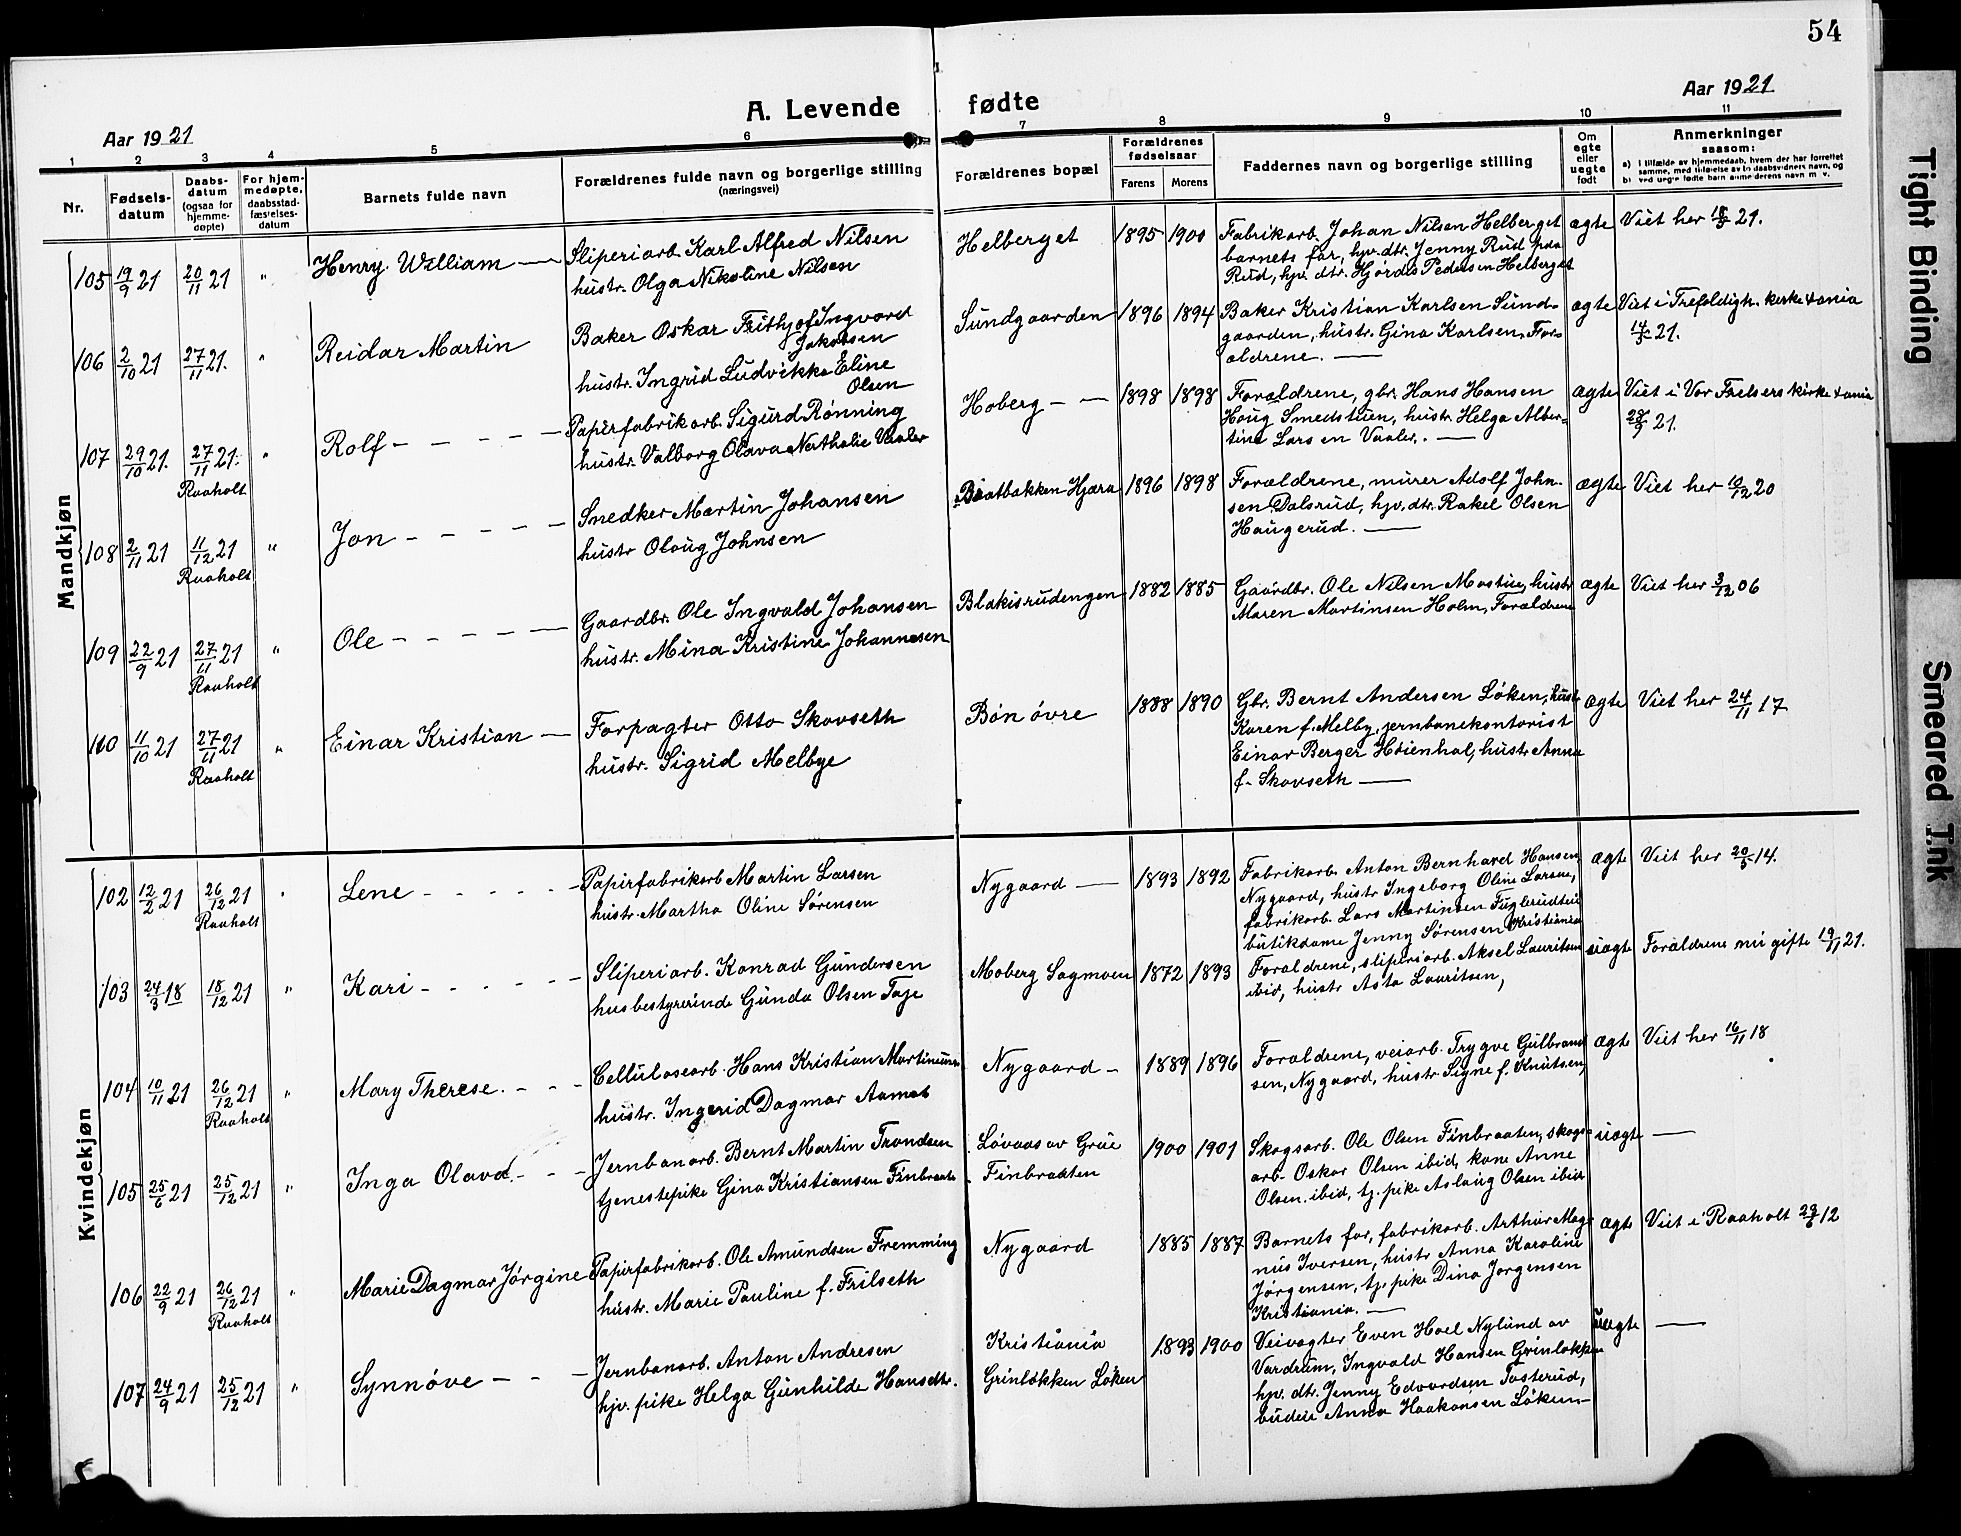 54
Aar 1921
A. Levende fødte
Aar 1921
1 2 3 4 5 6 7 8 9 10 11
Nr.
Fødsels-
datum
Daabs-
datum
(ogsaa for
hjemme-
døpte)
For hjem-
medøpte,
daabsstad-
fæstelses-
datum
Barnets fulde navn
Forældrenes fulde navn og borgerlige stilling
(næringsvei)
Forældrenes bopæl
Forældrenes
fødselsaar
Farens Morens
Faddernes navn og borgerlige stilling
Om
egte
eller
uegte
født
Anmerkninger
saasom:
a) i tilfælde av hjemmedaab, hvem der har forrettet
samme, med tilføielse av to daabsvidners navn, og
b) ved uegte fødte barn anmelderens navn m. v.
Mandkjøn
105 19/9 21 20/11 21 " Henry William —
Sliperiarb. Karl Alfred Nilsen
hustr. Olga Nikoline Nilsen
Helberget 1895 1900
Fabrikarb. Johan Nilsen Helberget
barnets far, hpv. dtr. Jenny Rud
Rud, hjv. dtr. Hjørdis Pedersen Helberget
ægte Viet her 21.
106 2/10 21 27/11 21. " Reidar Martin
Baker Oskar Frithjof Ingvard
Jakobsen
hustr. Ingrid Ludvikke Eline
Olsen
Sundgaarden 1896 1894
Baker Kristian Karlsen Sund-
gaarden, hustr. Gina Karlsen, For-
ældrene. —
ægte Viet i Trefoldigh. kirke Xania
14/5 21.
107 29/10 21. 27/11 21. " Rolf - - - - -
Raaholt
Papirfabrikarb. Sigurd Rønning
hustr. Valborg Olava Nathalie Vaaler
Hoberg - - 1898 1898
Forældrene, gbr. Hans Hansen
Haug Smedstuen, hustr. Helga Alber-
tine Larsen Vaaler. —
ægte Viet i Vor Frelsers kirke Xania
21.
108 2/11 21 11/12 21 " Jon - - - - -
Raaholt
Snedker Martin Johansen
hustr Olaug Johnsen
Braatbakken Hjæra 1896 1898
Forældrene, murer Adolf John-
sen Dalsrud, hjv. dtr. Rakel Olsen
Haugerud. —
ægte Viet her 10/12 20
109 22/9 21 27/11 21 " Ole - - - - -
Raaholt
Gaardbr. Ole Ingvald Johansen
hustr. Mina Kristine Johannesen
Blakisrudengen 1882 1885
Gaardbr. Ole Nilsen Mastue, hustr
Maren Martinsen Holm, Forældrene
ægte Viet her 3/12 06
110 11/10 21 27/11 21 " Einar Kristian —
Raaholt
Forpagter Otto Skovseth
hustr. Sigrid Melbye
Bøn øvre 1888 1890
Gbr. Bernt Andersen Løken, hustr
Karen f. Melby, jernbanekontorist
Einar Berger Høienhal, hustr. Anna
f. Skovseth —
ægte Viet her 24/11 17
Kvindekjøn
102 12/2 21 26/12 21 " Lene - - - - -
Raaholt
Papirfabrikarb Martin Larsen
hustr. Martha Oline Sørensen
Nygaard — 1893 1892
Fabrikarb. Anton Bernhard Hansen,
Nygaard, hustr Ingeborg Oline Larsen,
fabrikarb. Lars Martinsen
butikdame Jenny Sørensen Kristiania
ægte Viet her 20/5 14.
103 24/3 18 18/12 21 " Kari - - - - -
Sliperiarb. Konrad Gundersen
husbestyrerinde Gunda Olsen Taje
Moberg Sagmoen 1872 1893
Forældrene, sliperiarb. Aksel Lauritsen
ibid, hustr Asta Lauritsen,
uægte Forældrene nu gifte 19/11 21.
104 10/11 21 26/12 21 " Mary Therese. - - -
Raaholt
Cellulosearb. Hans Kristian Martinussen
hustr. Ingerid Dagmar Aamot
Nygaard - 1889 1896
Forældrene, veiarb. Trygve Gulbrand-
sen, Nygaard, hustr Signe f. Knutsen,
ægte Viet her 16/11 18
105 25/6 21 25/12 21 " Inga Olava. - -
Jernbanarb. Bernt Martin Trondsen
tjenestepike Gina Kristiansen Finbraaten
Løvaas av Grue
Finbraaten
1900 1901
Skogsarb. Ole Olsen Finbraaten, skogs-
arb. Oskar Olsen ibid, kone Anne
Olsen. ibid, tj. pike Aslaug Olsen ibid
uægte —
106 22/9 21 26/12 21 " Marie Dagmar Jørgine
Raaholt
Papirfabrikarb. Ole Amundsen Fremming
hustr. Marie Pauline f. Frilseth
Nygaard 1885 1887
Barnets far, fabrikarb. Arthur Mag-
nus Iversen, hustr Anna Karoline
Jørgensen, tj. pike Dina Jørgensen
Kristiania. —
ægte Viet i Raaholt 29/6 12
107 24/9 21 25/12 21 " Synnøve - - -
Jernbanarb. Anton Andresen
hjv. pike Helga Gunhilde Hansdtr.
Kristiania
Grinløkken Løken
1893 1900
Veivogter Even Hoel Nylund av
Vardrum, Ingvald Hansen Grinløkken
hjv. dtr. Jenny Edvardsen Tosterud,
budeie Anna Haakonsen Løken. —
uægte —
Tight Binding
Smeared Ink